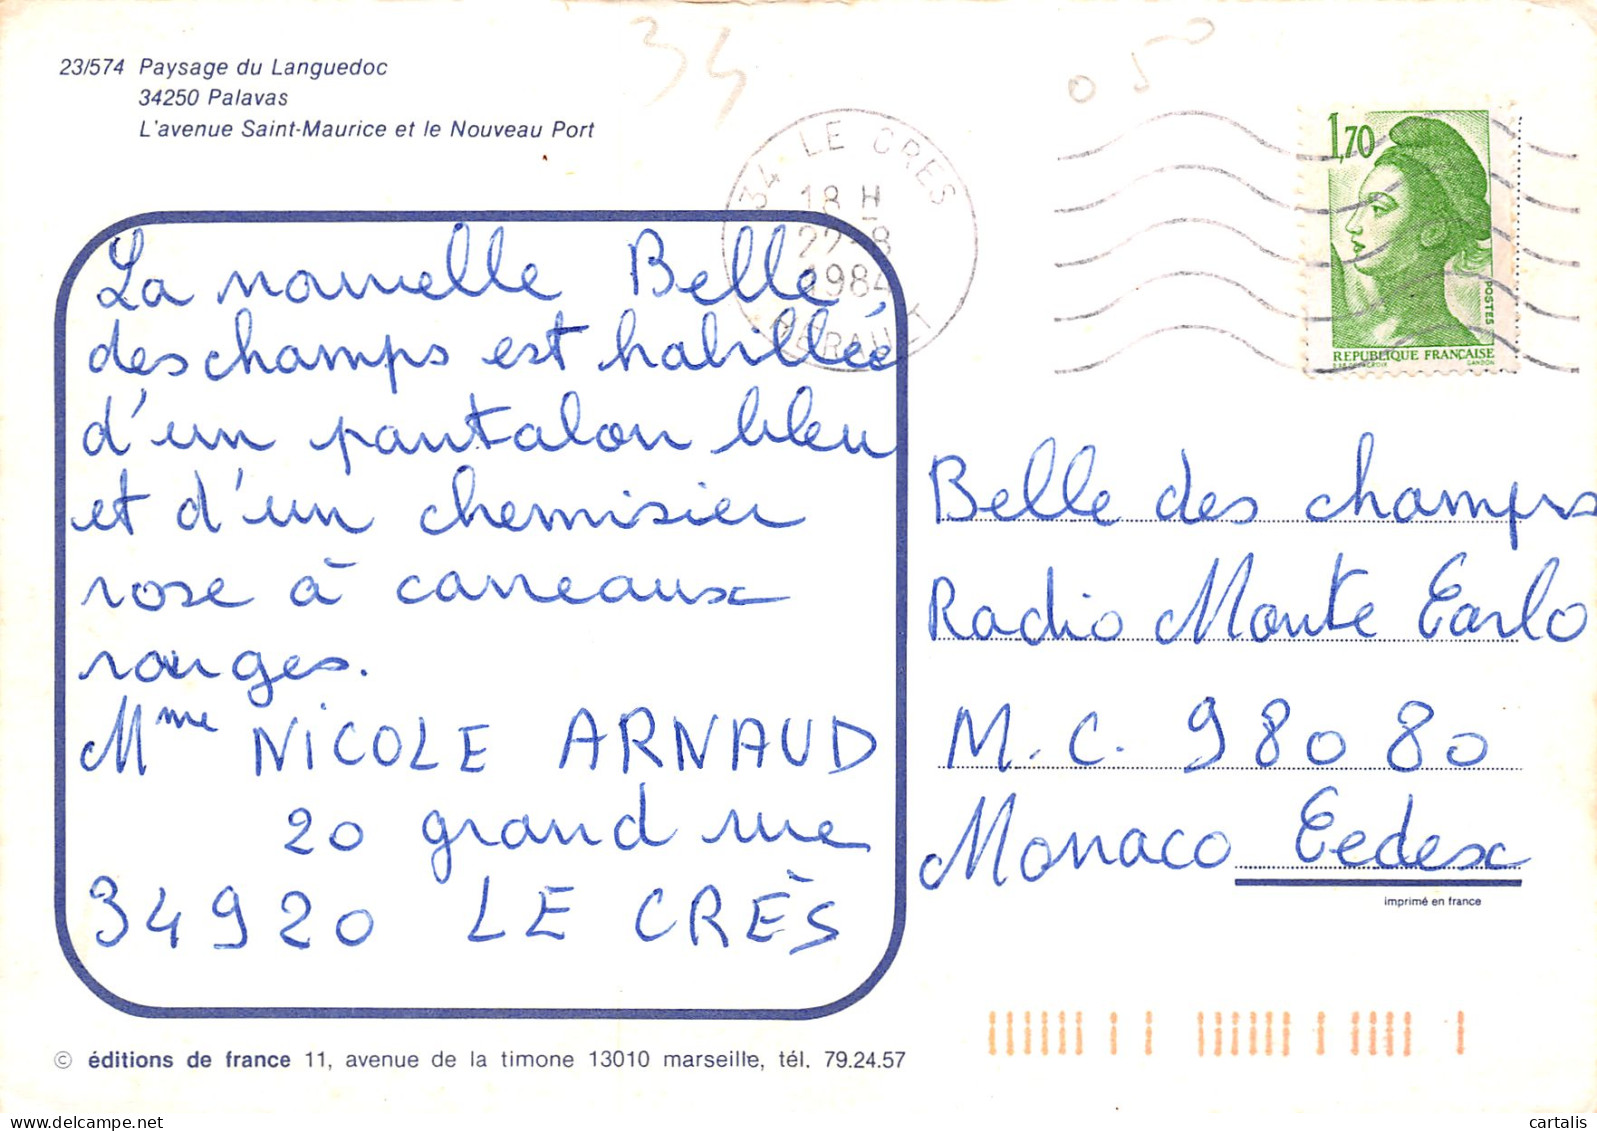 23/574 Paysage du Languedoc
34250 Palavas
L'avenue Saint-Maurice et le Nouveau Port
34
0 50
34 LE CRES
18 H
22-8
1984
HERAULT
1,70
POSTES
REPUBLIQUE FRANÇAISE
GANDON
La nouvelle Belle
des champs est habillée
d'un pantalon bleu
et d'un chemisier
rose à carreaux
rouges.
Mme NICOLE ARNAUD
20 grand rue
34920 LE CRÈS
Belle des champs
Radio Monte Carlo
M. C. 98080
Monaco Cedex
imprimé en france
© éditions de france 11, avenue de la timone 13010 marseille, tél. 79.24.57
cartalis